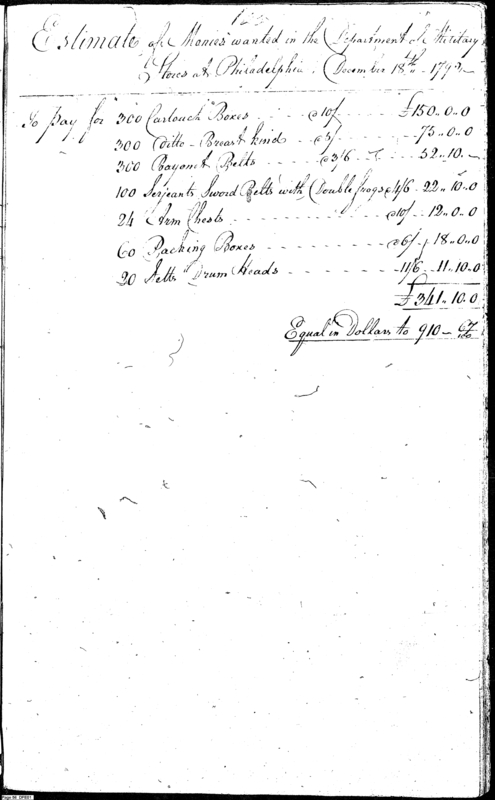 Estimate of Monies wanted in the Department of Military
Stores at Philadelphia. December 18th 1792
To pay for 300 Cartouch Boxes @ 10/ £150..0..0
300 Ditto - Breast kind @ 5/ 75..0..0
300 Bayonet Belts @ 3/6 52..10..
100 Serjeants Sword Belts with Double frogs @ 4/6 22..10..0
24 Arm Chests @ 10/ 12..0..0
60 Packing Boxes @ 6/ 18..0..0
20 Setts Drum Heads 11/6 11..10..0
£341..10..0
Equal in Dollars to 910 - 67/100